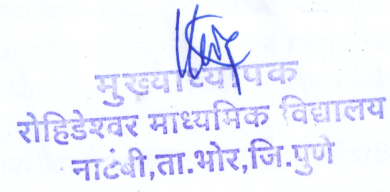 मुख्याध्यापक
रोहिडेश्वर माध्यमिक विद्यालय
नाटंबी,ता.भोर,जि.पुणे